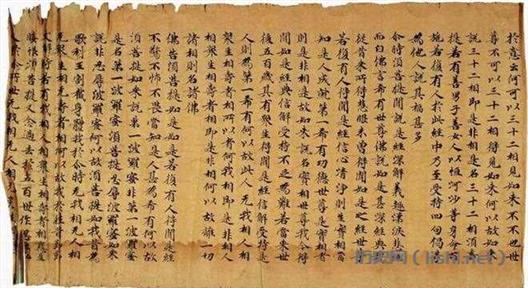 於意云何可以三十二相得見如來不不也世
尊不可以三十二相得見如來何以故如來
說三十二相即是非相是名三十二相須菩
提若有善男子善女人以恒河沙等身命布
施若復有人於此經中乃至受持四句偈等
為他人說其福甚多
尒時須菩提聞說是經深解義趣涕淚悲泣
而白佛言希有世尊佛說如是甚深經典我
從昔來所得慧眼未曾得聞如是之經世尊
若復有人得聞是經信心清淨則生實相當
知是人成就第一希有功德世尊是實相者
則是非相是故如來說名實相世尊我今得
聞如是經典信解受持不足為難若當來世
後五百歲其有眾生得聞是經信解受持是
人則為第一希有何以故此人无我相人相
眾生相壽者相所以者何我相即是非相人
相眾生相壽者相即是非相何以故離一切
諸相則名諸佛
佛告須菩提如是如是若復有人得聞是經
不驚不怖不畏當知是人甚為希有何以故
須菩提如來說第一波羅蜜非第一波羅蜜
是名第一波羅蜜須菩提忍辱波羅蜜如來
說非忍辱波羅蜜何以故須菩提如我昔為
歌利王割截身體我於尒時无我相无人相
无眾生相无壽者相何以故我於往昔節節
支解時若有我相人相眾生相壽者相應生
瞋恨須菩提又念過去於五百世作
世无我相无人相
历史网(lishi.net)